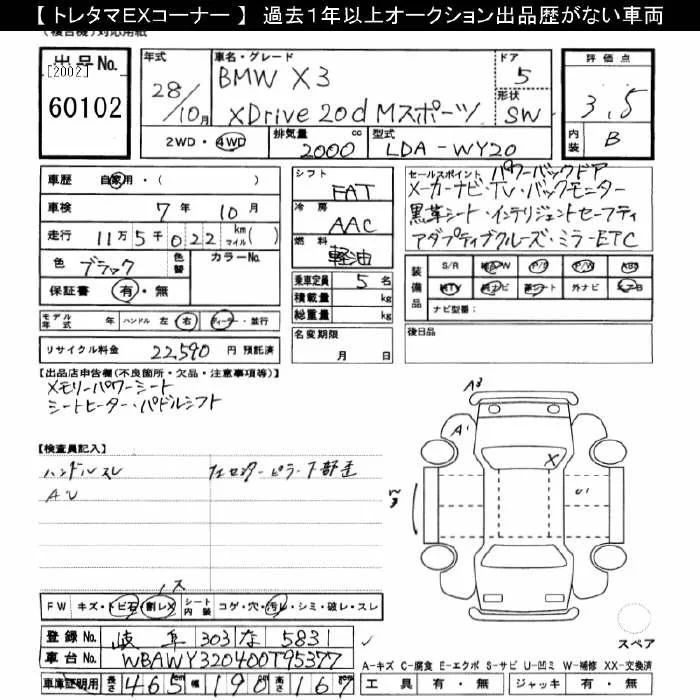 【 トレタマEXコーナー 】 過去1年以上オークション出品歴がない車両
(複合名)対応用紙
出品No.
[2002]
60102
年式
28/10月
車名・グレード
BMW X3
XDrive 20d Mスポーツ
ドア
5
形状
SW
評価点
3.5
内装
B
2WD・4WD
排気量
2000 cc
型式
LDA-WY20
車歴 自家用・( )
車検 7年 10月
走行 11万5千022 km マイル( )
色 ブラック
色替
カラーNo.
保証書 有・無
モデル年式 年 ハンドル 左 右 ディーラー・並行
リサイクル料金 22,590 円 預託済
シフト
FAT
冷房
AAC
燃料
軽油
乗車定員 5 名
積載量 kg
総重量 kg
名変期限
月 日
セールスポイント パワーバックドア
メーカーナビ・TV・バックモニター
黒革シート・インテリジェントセーフティ
アダプティブクルーズ・ミラーETC
装備品
S/R P/S P/W ABS
ナビ 革シート 外ナビ
ナビ型番:
後日品
【出品店申告欄(不良箇所・欠品・注意事項等)】
メモリーパワーシート
シートヒーター・パドルシフト
【検査員記入】
ハンドルスレ
AU
A3
A1
X
U1
FW キズ・トビ石・割レX シート内装 コゲ・穴・汚レ・シミ・破レ・スレ
登録No. 岐阜 303 な 5831
車台No. WBAWY320400T95377
車庫証明用 長さ 465 cm 幅 190 cm 高さ 167 cm
スペア
A-キズ C-腐食 E-エクボ S-サビ U-凹ミ W-補修 XX-交換済
工具 有・無 ジャッキ 有・無